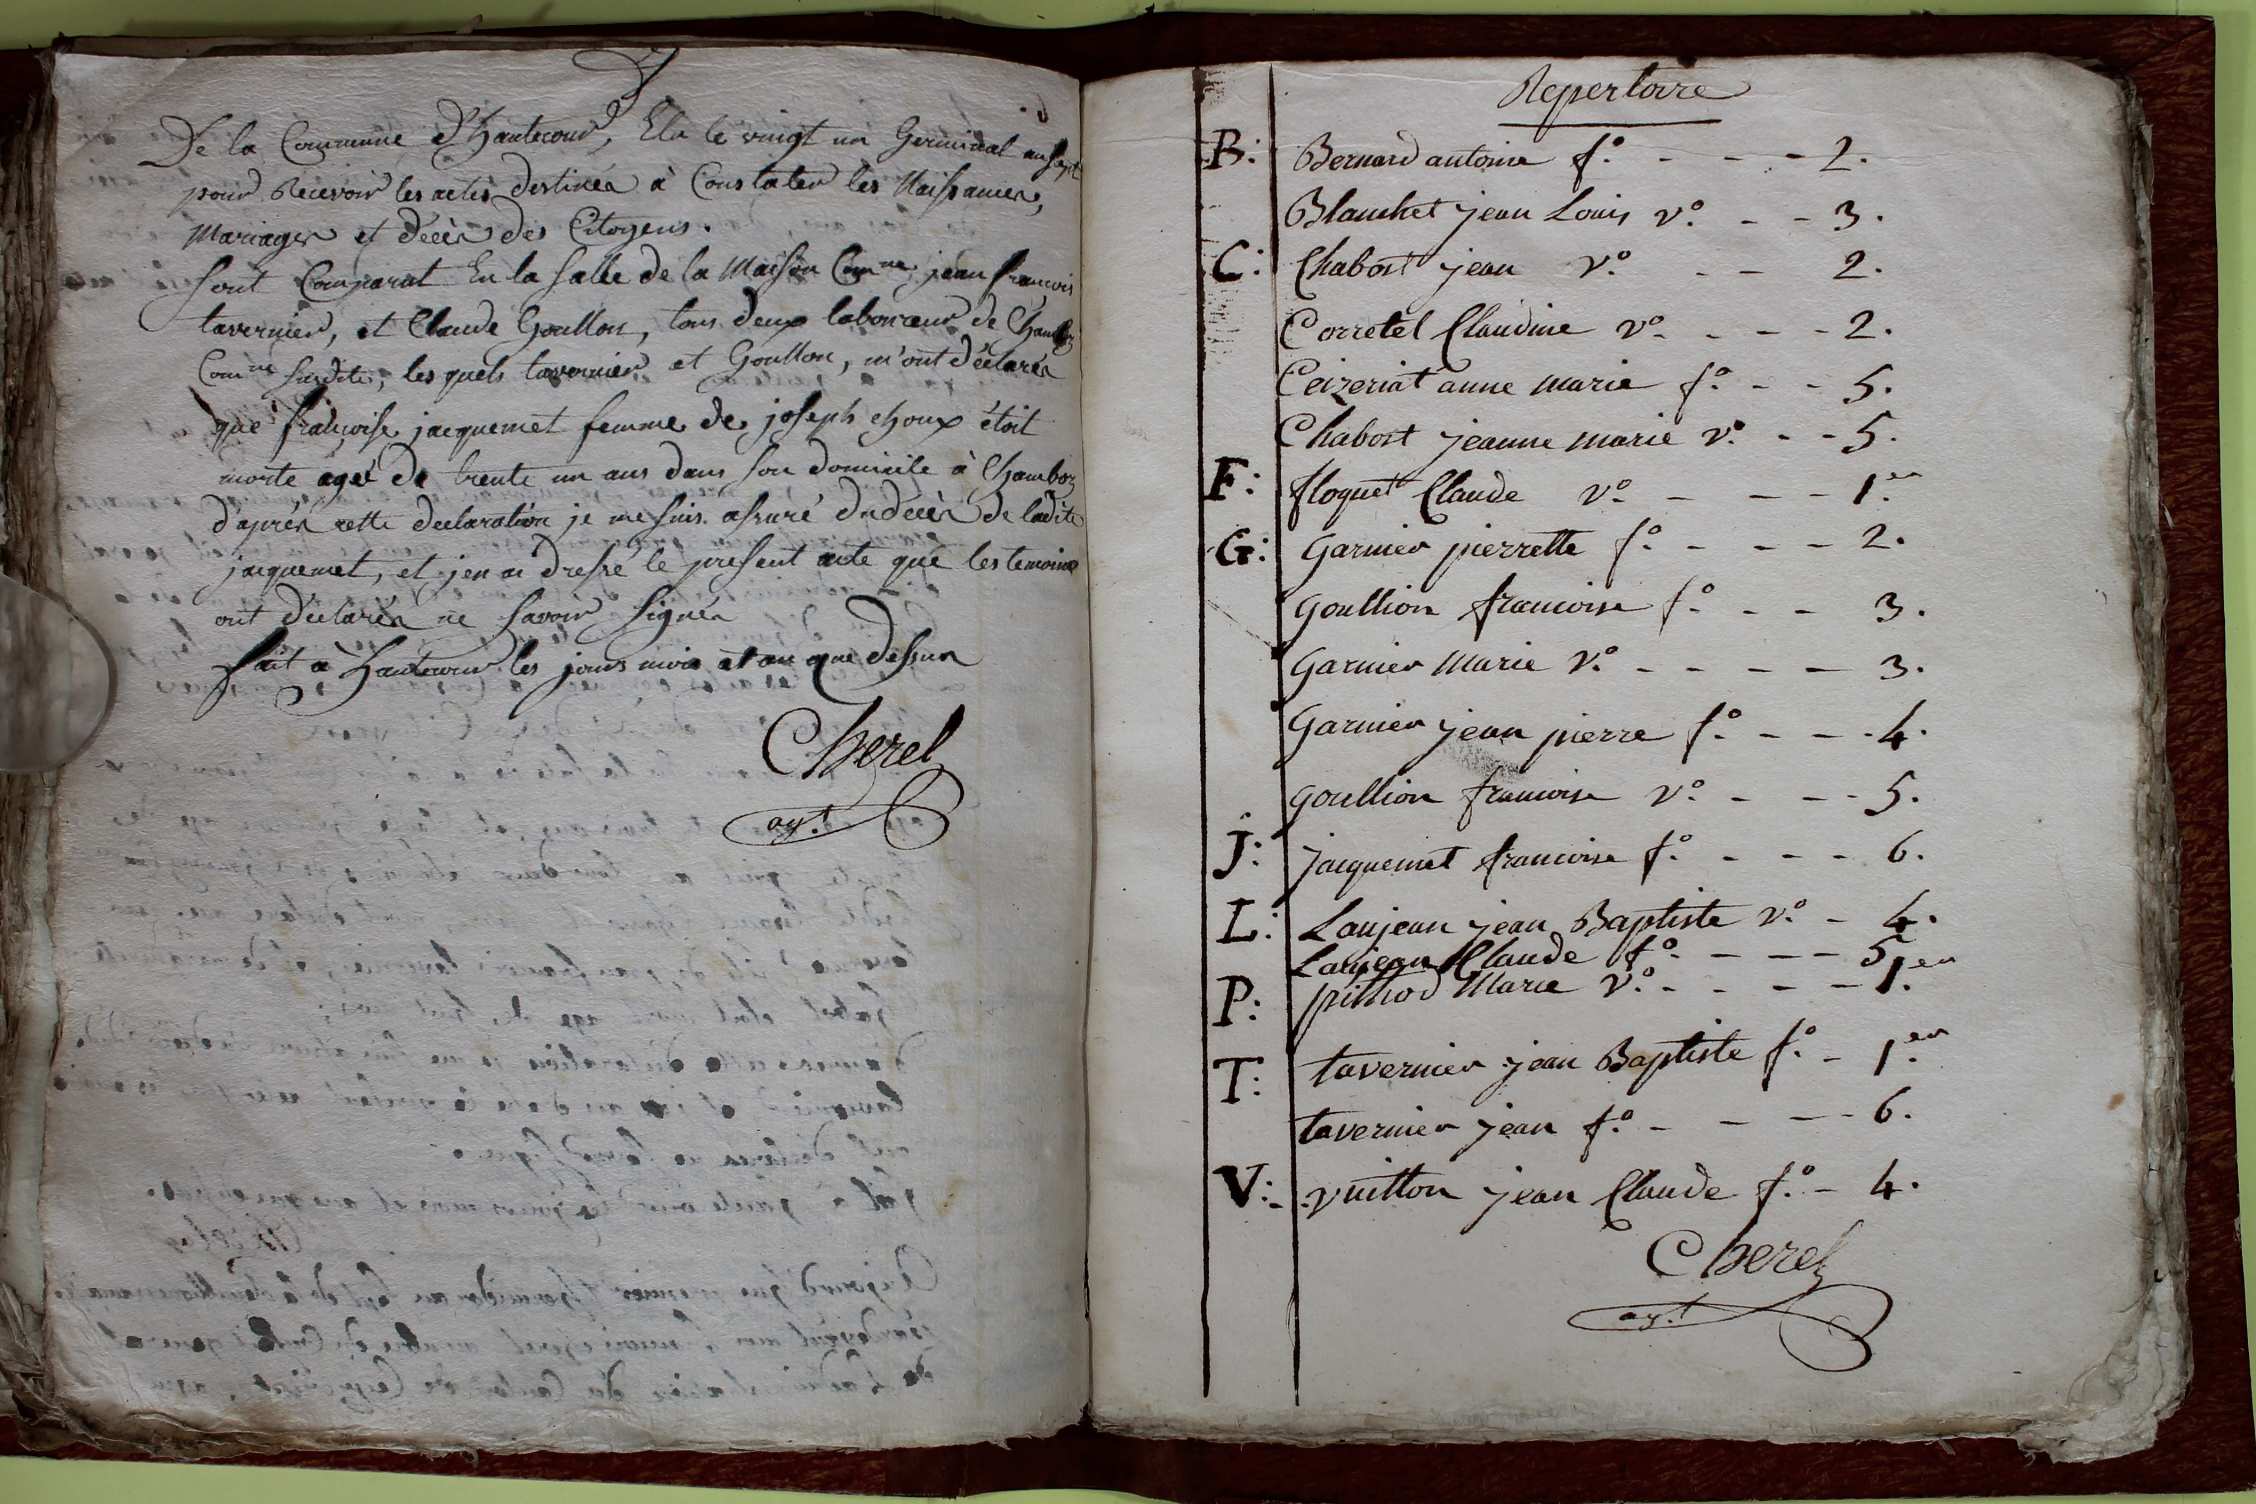 De la Commune d'hautecour, Elu le vingt un Germinal an Sept
pour Recevoir les actes destinés à Constater les Naissances,
Mariages et décès des Citoyens.
sont Comparut En la Salle de la Maison Com^ne jean francois
tavernier, et Claude Goullion, tous deux laboureur de Chambo
Com^ne Susdite, les quels tavernier et Goullion, m'ont déclarés
que francoise jacquemet femme de joseph choux étoit
morte agée de trente un ans dans son domicile à Chambo
d'après cette declaration je me suis assuré du décès de ladite
jacquemet, et j'en ai dressé le present acte que les temoins
ont déclarés ne savoir signer
fait à hautecour les jours mois et an que dessus
Cherel
ag.^t
Repertoire
B: Bernard antoine f.° - - - 2.
Blanchet jean Louis v.° - - 3.
C: Chabost jean v.° - - 2.
Corretel Claudine v.° - - - 2.
Ceizeriat anne marie f.° - - 5.
Chabost jeanne marie v.° - - 5.
F: floquet Claude v.° - - - 1.^er
G: Garnier pierrette f.° - - - 2.
Goullion francoise f.° - - 3.
Garnier Marie v.° - - - - 3.
Garnier jean pierre f.° - - - 4.
Goullion francoise v.° - - - 5.
J: jacquemet francoise f.° - - - 6.
L: Laujean jean Baptiste v.° - 4.
Laujean Claude f.° - - - 5
P: pithiod Marie v.° - - - - 1.^er
T: tavernier jean Baptiste f.° - 1.^er
tavernier jean f.° - - - 6.
V: vuitton jean Claude f.° - 4.
Cherel
ag.^t